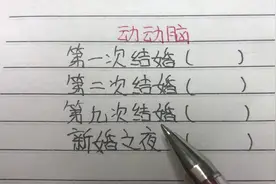 动动脑
第一次结婚(    )
第二次结婚(    )
第九次结婚(    )
新婚之夜(    )